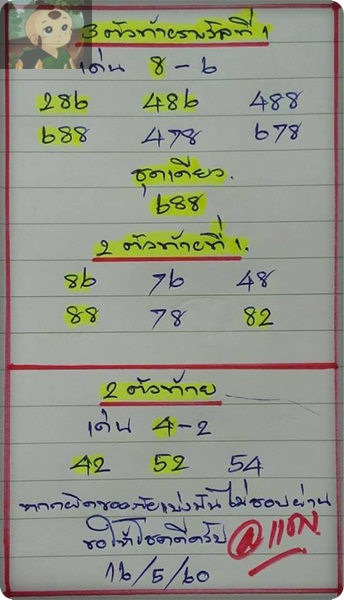 3 ตัวท้ายรางวัลที่ 1
เด่น 8 - 6
286 486 488
688 478 678
ชุดเดียว.
688
2 ตัวท้ายที่ 1.
86 76 48
88 78 82
2 ตัวท้าย
เด่น 4-2
42 52 54
หากผิดขออภัยแบ่งปันไม่ชอบผ่าน
ขอให้โชคดีครับ @แดง
16/5/60